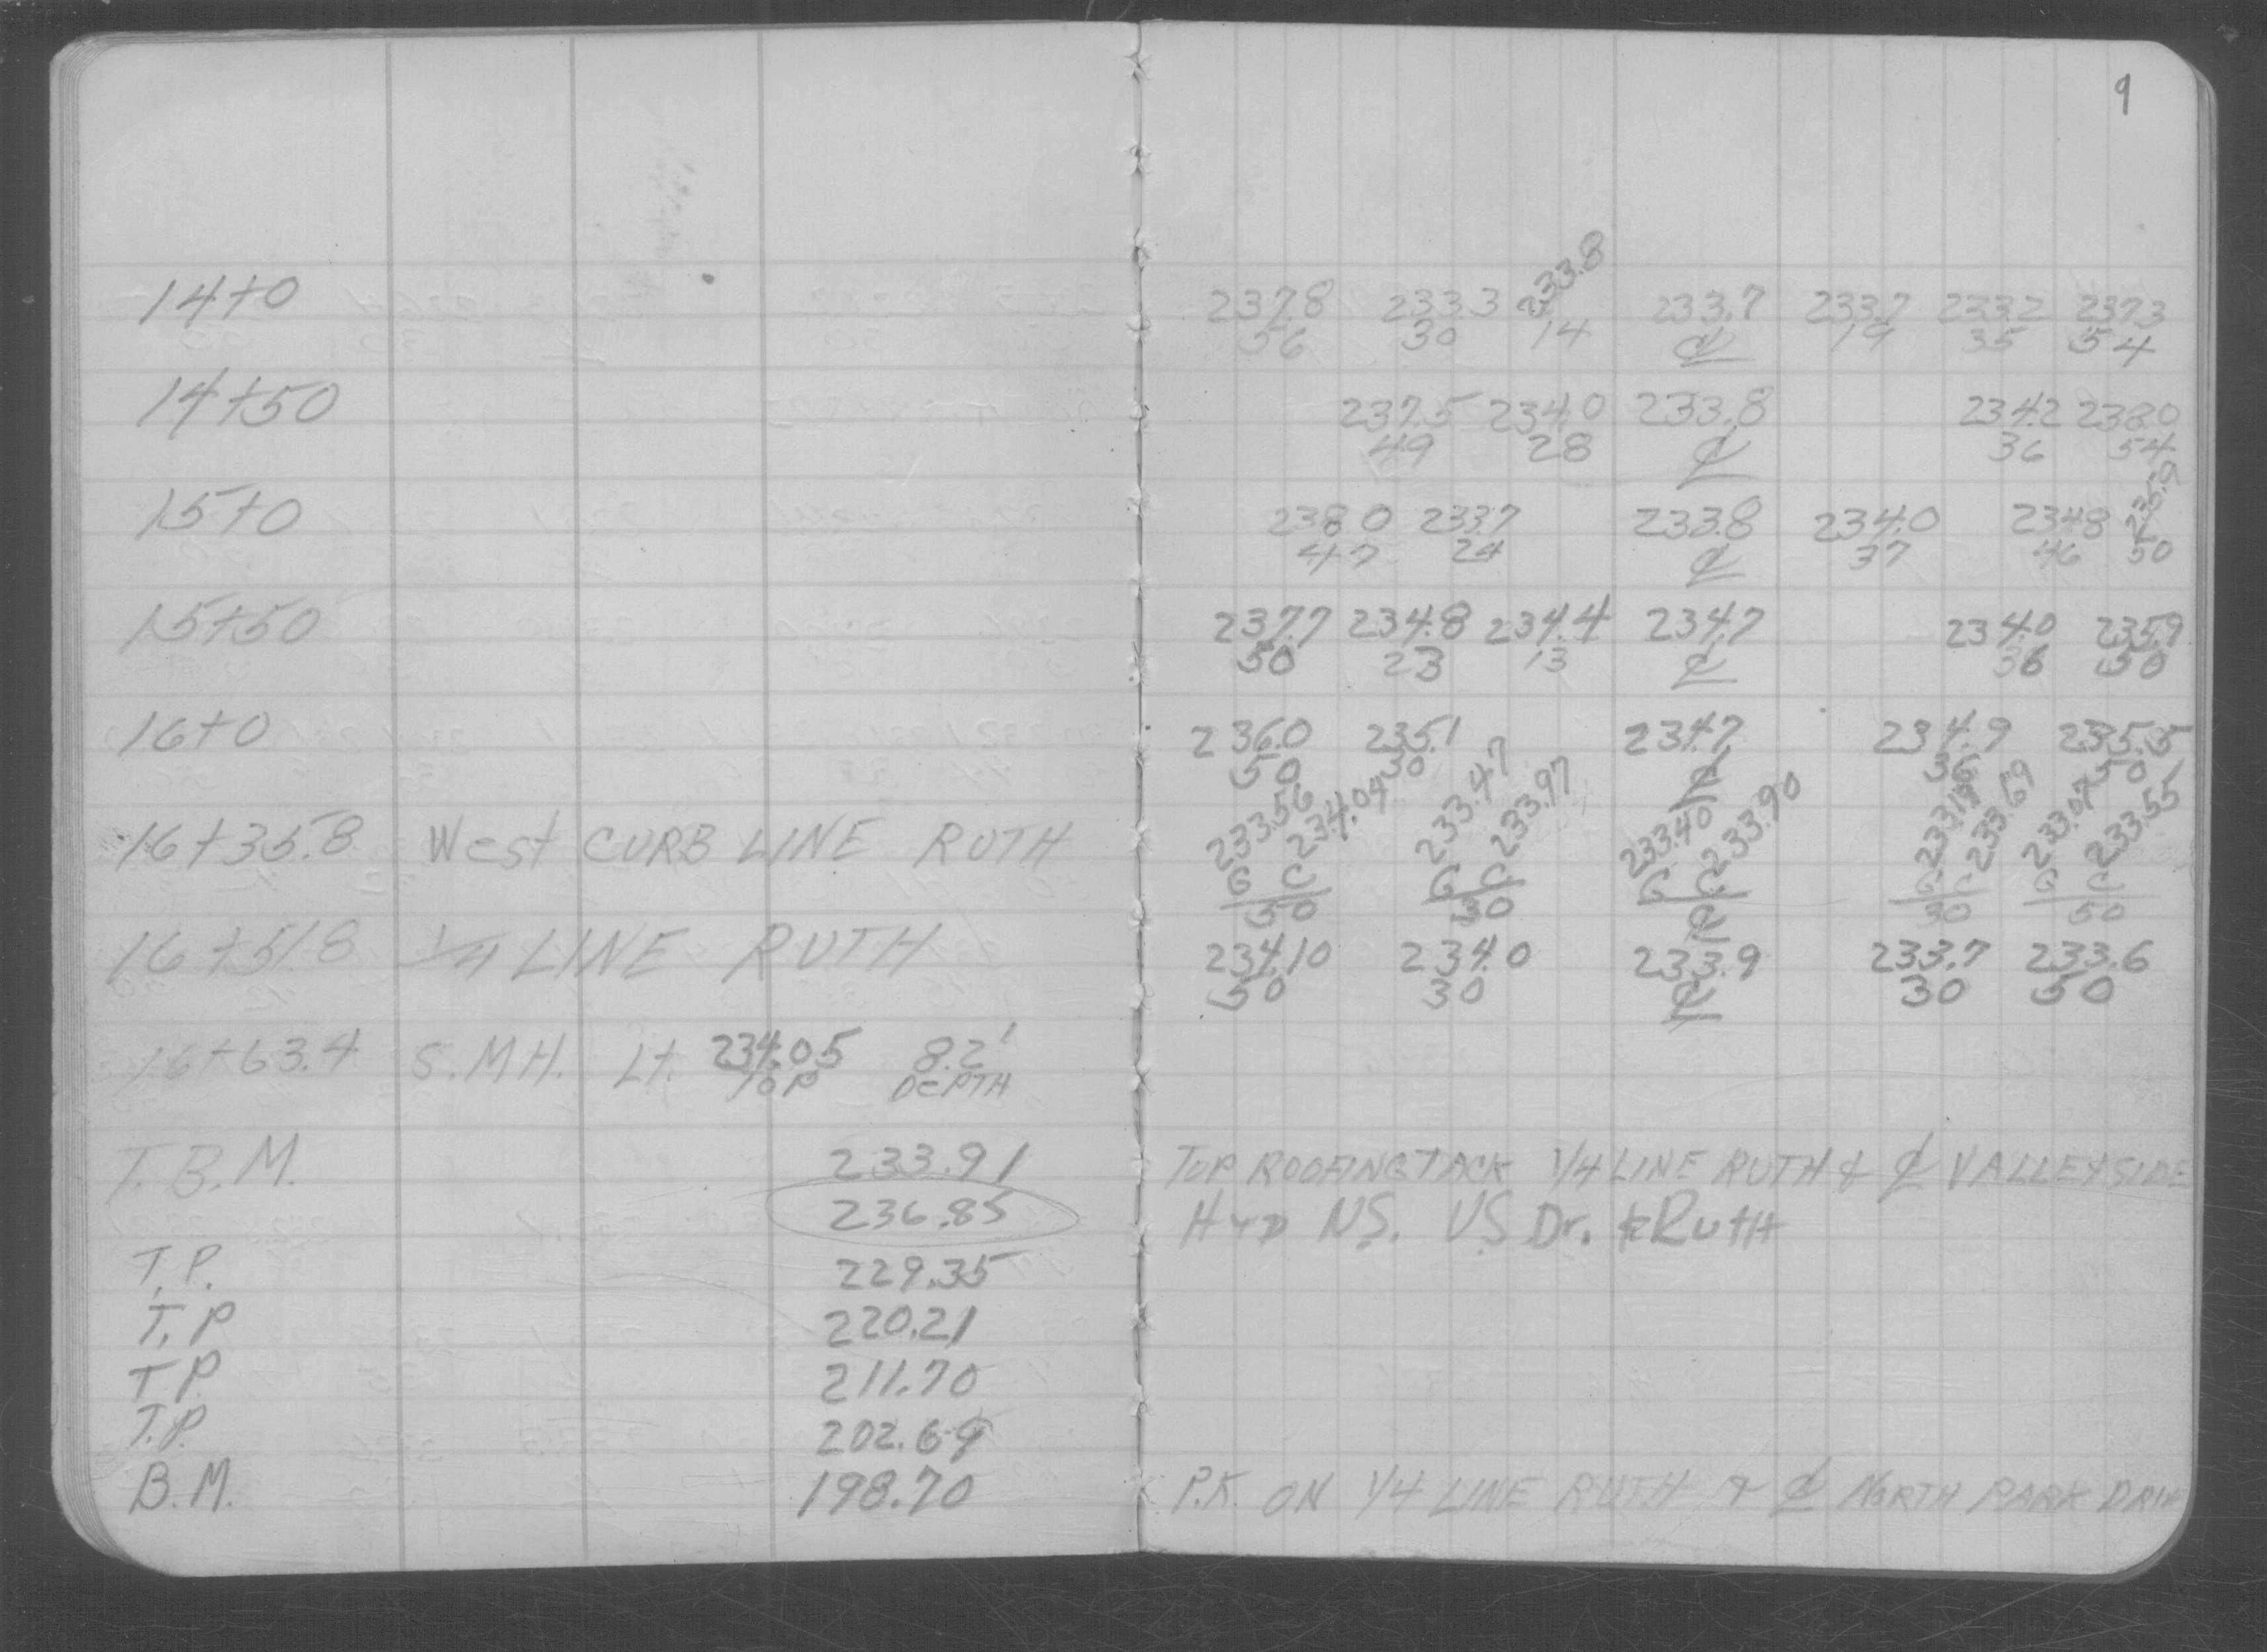 9
14+0 237.8 233.3 233.8 233.7 233.7 233.2 237.3
56 30 14 ℄ 19 35 54
14+50 237.5 234.0 233.8 234.2 238.0
49 28 ℄ 36 54
15+0 238.0 233.7 233.8 234.0 234.8 235.9
47 24 ℄ 37 46 50
15+50 237.7 234.8 234.4 234.7 234.0 235.9
50 23 13 ℄ 36 50
16+0 236.0 235.1 234.7 234.9 235.5
50 30 ℄ 36 50
16+35.8 West CURB LINE RUTH 233.56 234.04 233.47 233.97 233.40 233.90 233.19 233.69 233.07 233.55
G C G C G C G C G C
50 30 ℄ 30 50
16+51.8 1/4 LINE RUTH 234.10 234.0 233.9 233.7 233.6
50 30 ℄ 30 50
16+63.4 S.M.H. Lt. 234.05 8.2'
TOP DEPTH
T.B.M. 233.91 TOP ROOFING TACK 1/4 LINE RUTH & ℄ VALLEYSIDE
236.85 HYD N.S. V.S. Dr. & RUTH
T.P. 229.35
T.P 220.21
T.P. 211.70
T.P. 202.69
B.M. 198.70 P.K. ON 1/4 LINE RUTH & ℄ NORTH PARK DRIVE